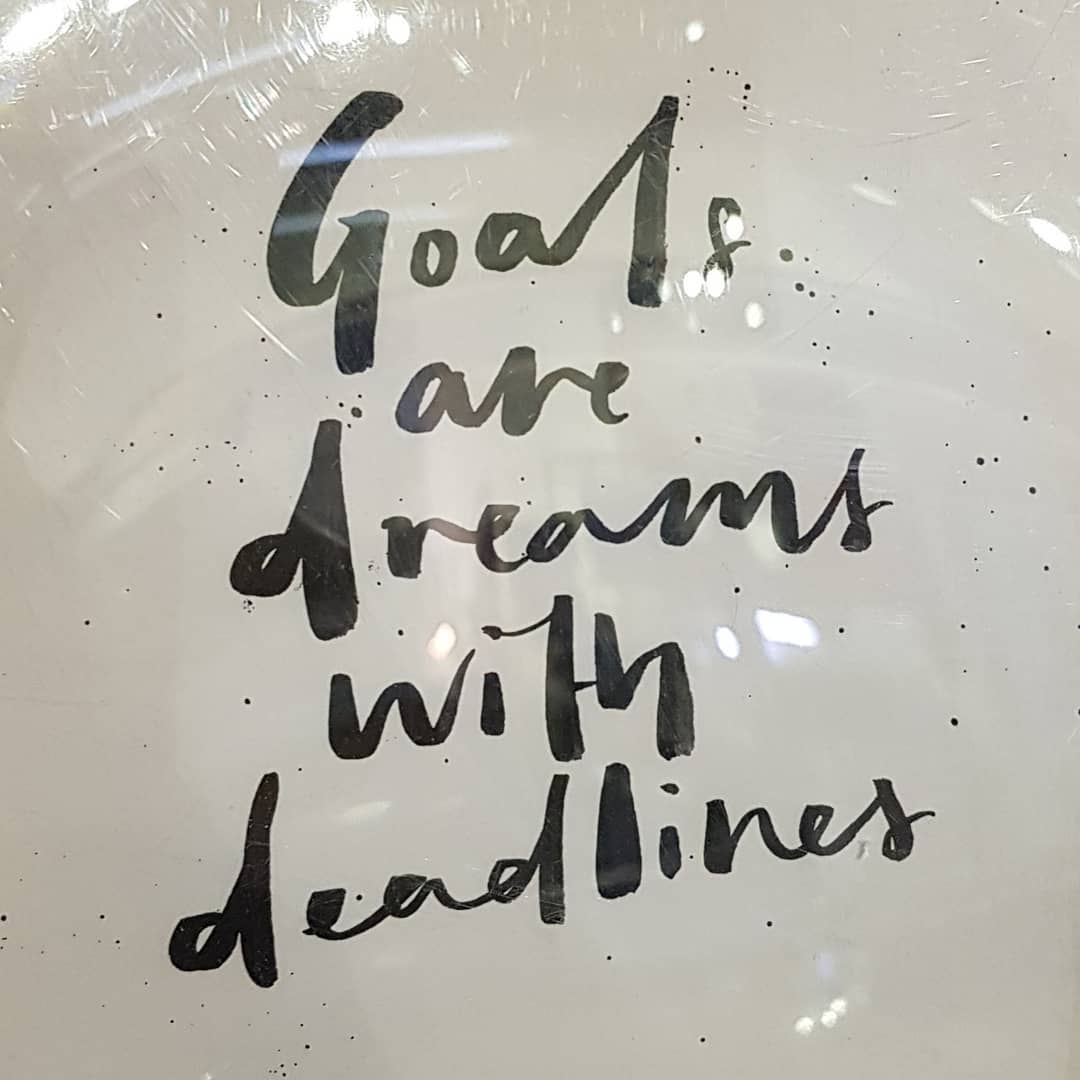 Goals
are
dreams
with
deadlines